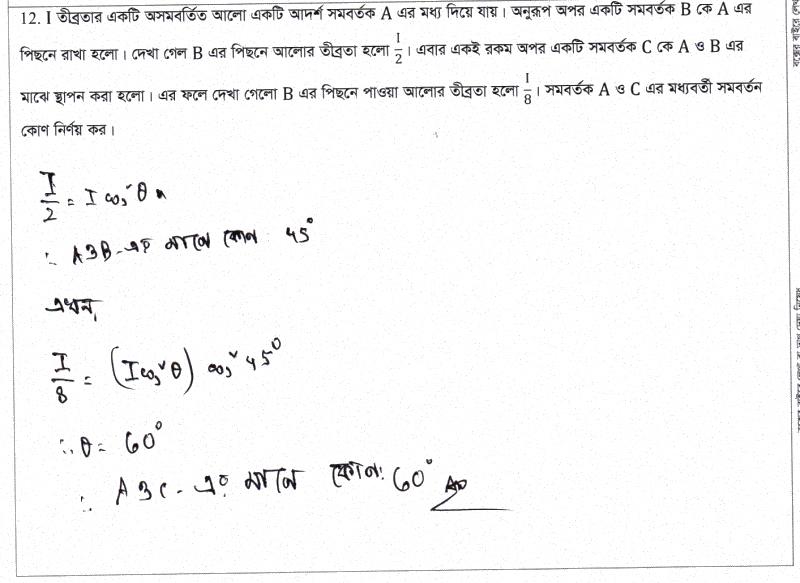 12. I তীব্রতার একটি অসমবর্তিত আলো একটি আদর্শ সমবর্তক A এর মধ্য দিয়ে যায়। অনুরূপ অপর একটি সমবর্তক B কে A এর
পিছনে রাখা হলো। দেখা গেল B এর পিছনে আলোর তীব্রতা হলো I/2। এবার একই রকম অপর একটি সমবর্তক C কে A ও B এর
মাঝে স্থাপন করা হলো। এর ফলে দেখা গেলো B এর পিছনে পাওয়া আলোর তীব্রতা হলো I/8। সমবর্তক A ও C এর মধ্যবর্তী সমবর্তন
কোণ নির্ণয় কর।
I/2 = I cos²θ
∴ A ও B -এর মাঝে কোন 45°
এখন,
I/8 = (I cos²θ) cos² 45°
∴ θ = 60°
∴ A ও C - এর মাঝে কোন: 60° Ans